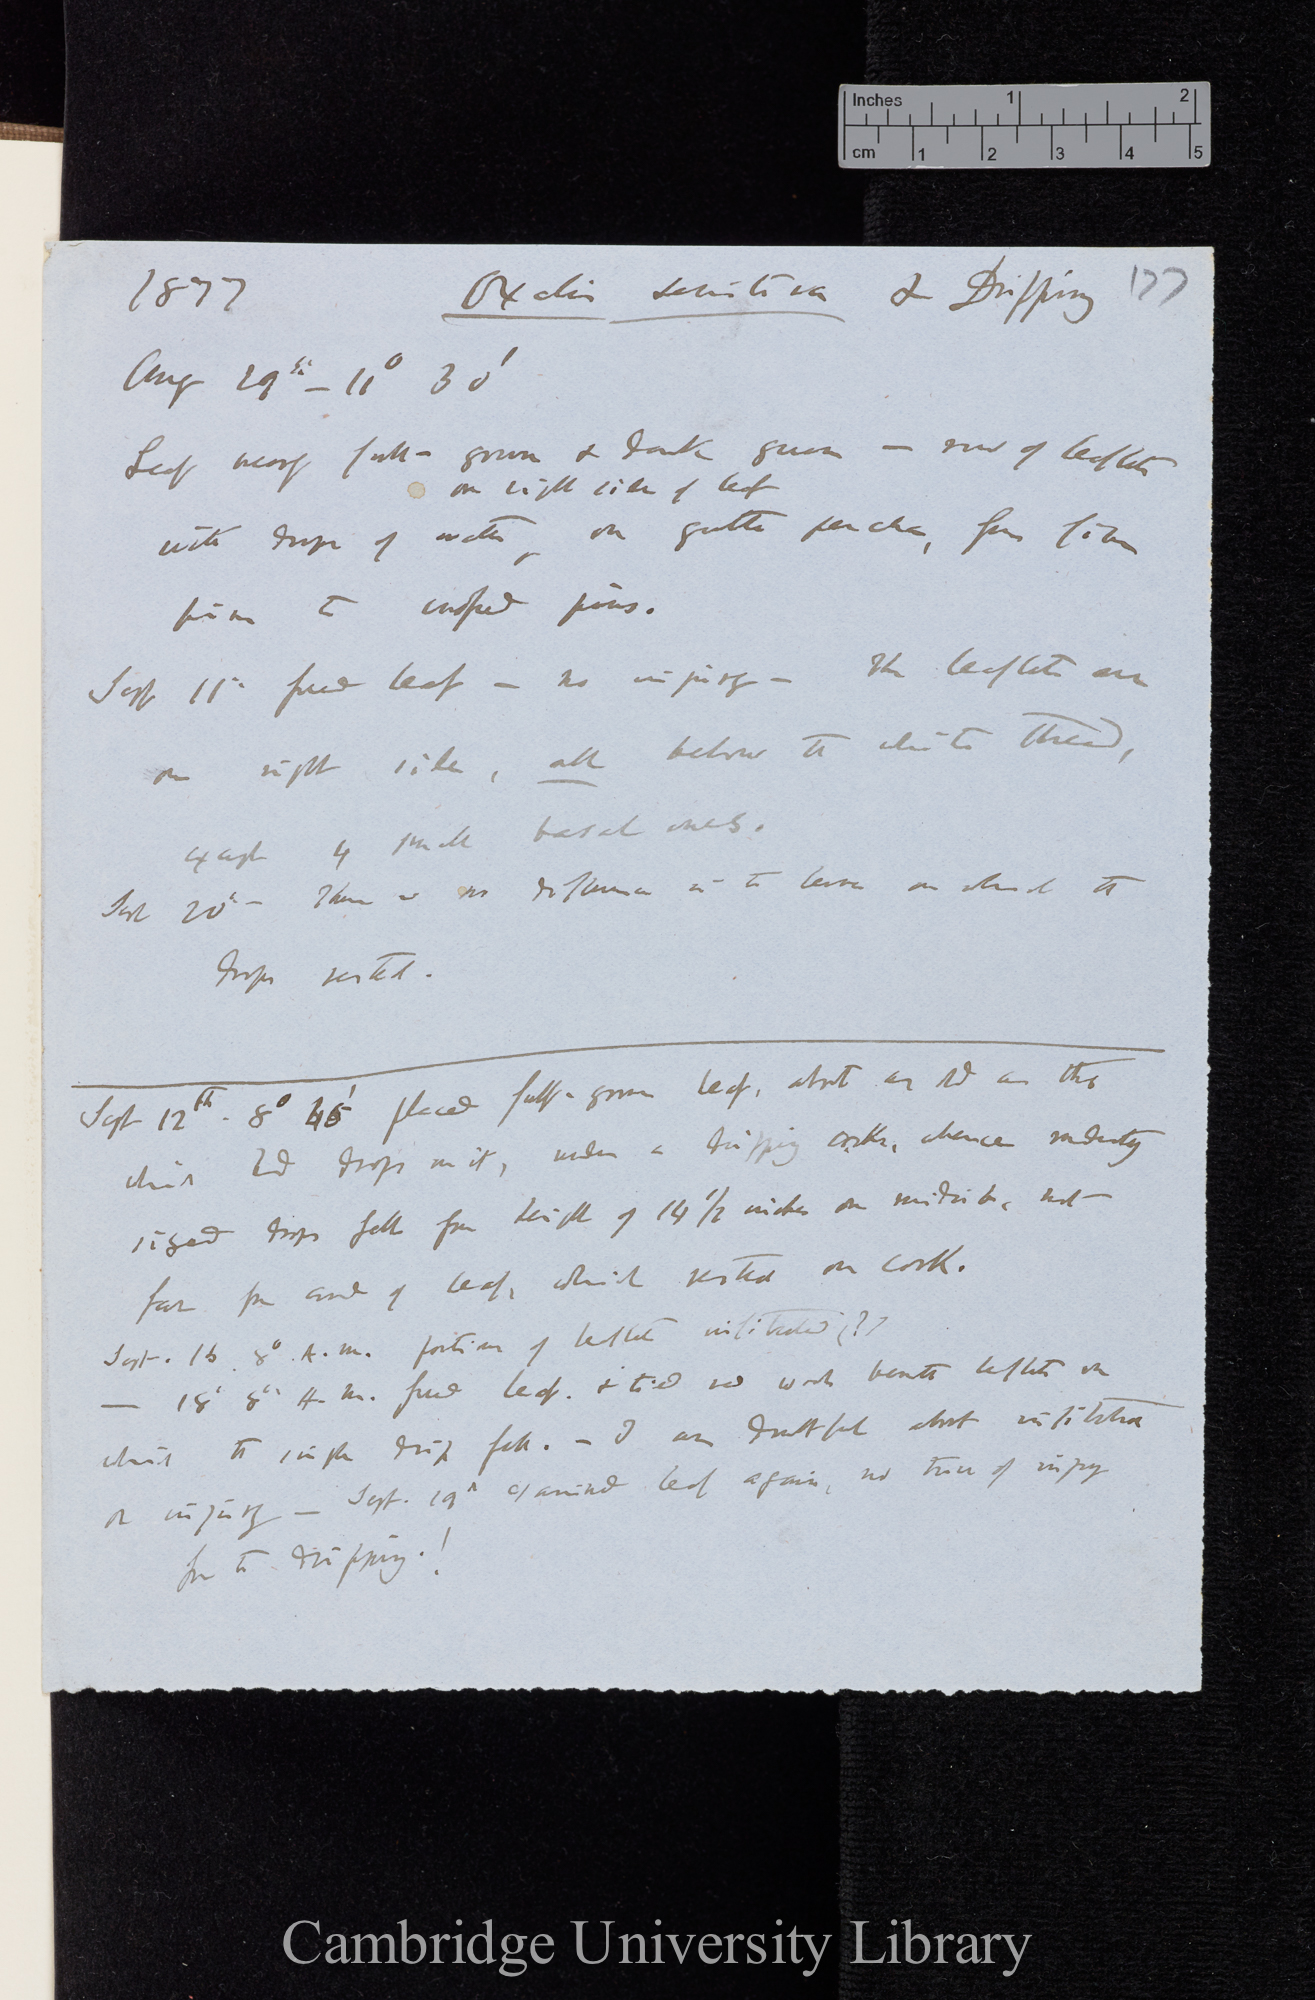 Inches 1 2
cm 1 2 3 4 5
1877 Oxalis sensitiva & Dripping 177
Aug 29th — 11° 30'
Leaf nearly full-grown & dark green — row of leaflets
on right side of leaf
with drops of water, on gutta percha, from
pins to pins.
Sept 11th freed leaf — no injury — The leaflets are
on right side, all below the white thread,
except 4 small basal ones.
Sept 20th — There is no difference in the leaves on which the
drops rested.
Sept 12th. 8° 45' placed full-grown leaf, about as old as the
which had drops on it, under a dripping cork, whence moderately
sized drops fell from height of 14 1/2 inches on midrib, not
far from end of leaf, which rested on cork.
Sept. 16 8° A.m. portion of leaflet infiltrated (??)
— 18th 8° A.m. freed leaf. & tied beneath leaflets on
which the single drip fell. — I am doubtful about infiltration
or injury — Sept. 19th examined leaf again, no trace of injury
from the dripping.!
Cambridge University Library